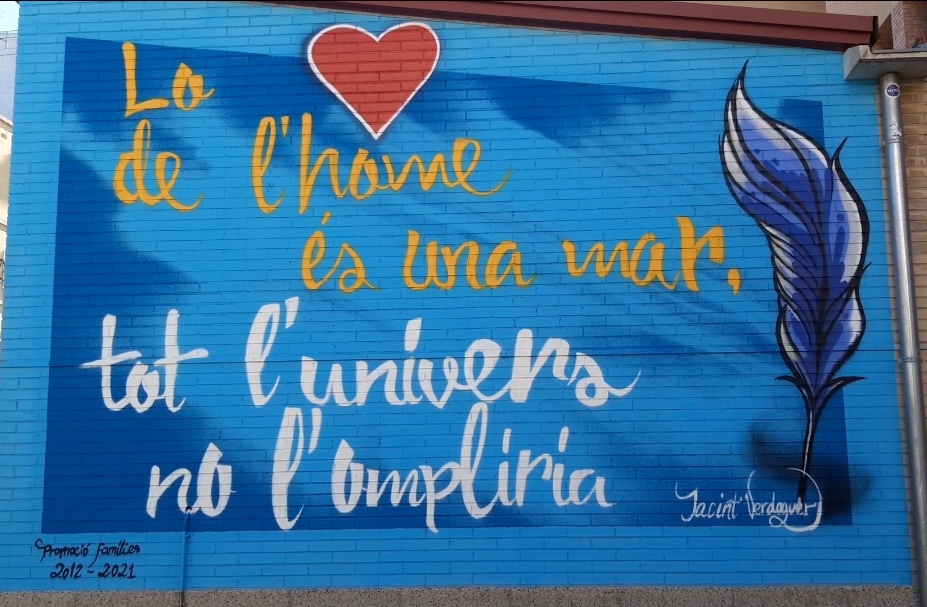 Lo
de l'home
és una mar,
tot l'univers
no l'ompliria
Jacint Verdaguer
Promoció famílies
2012-2021